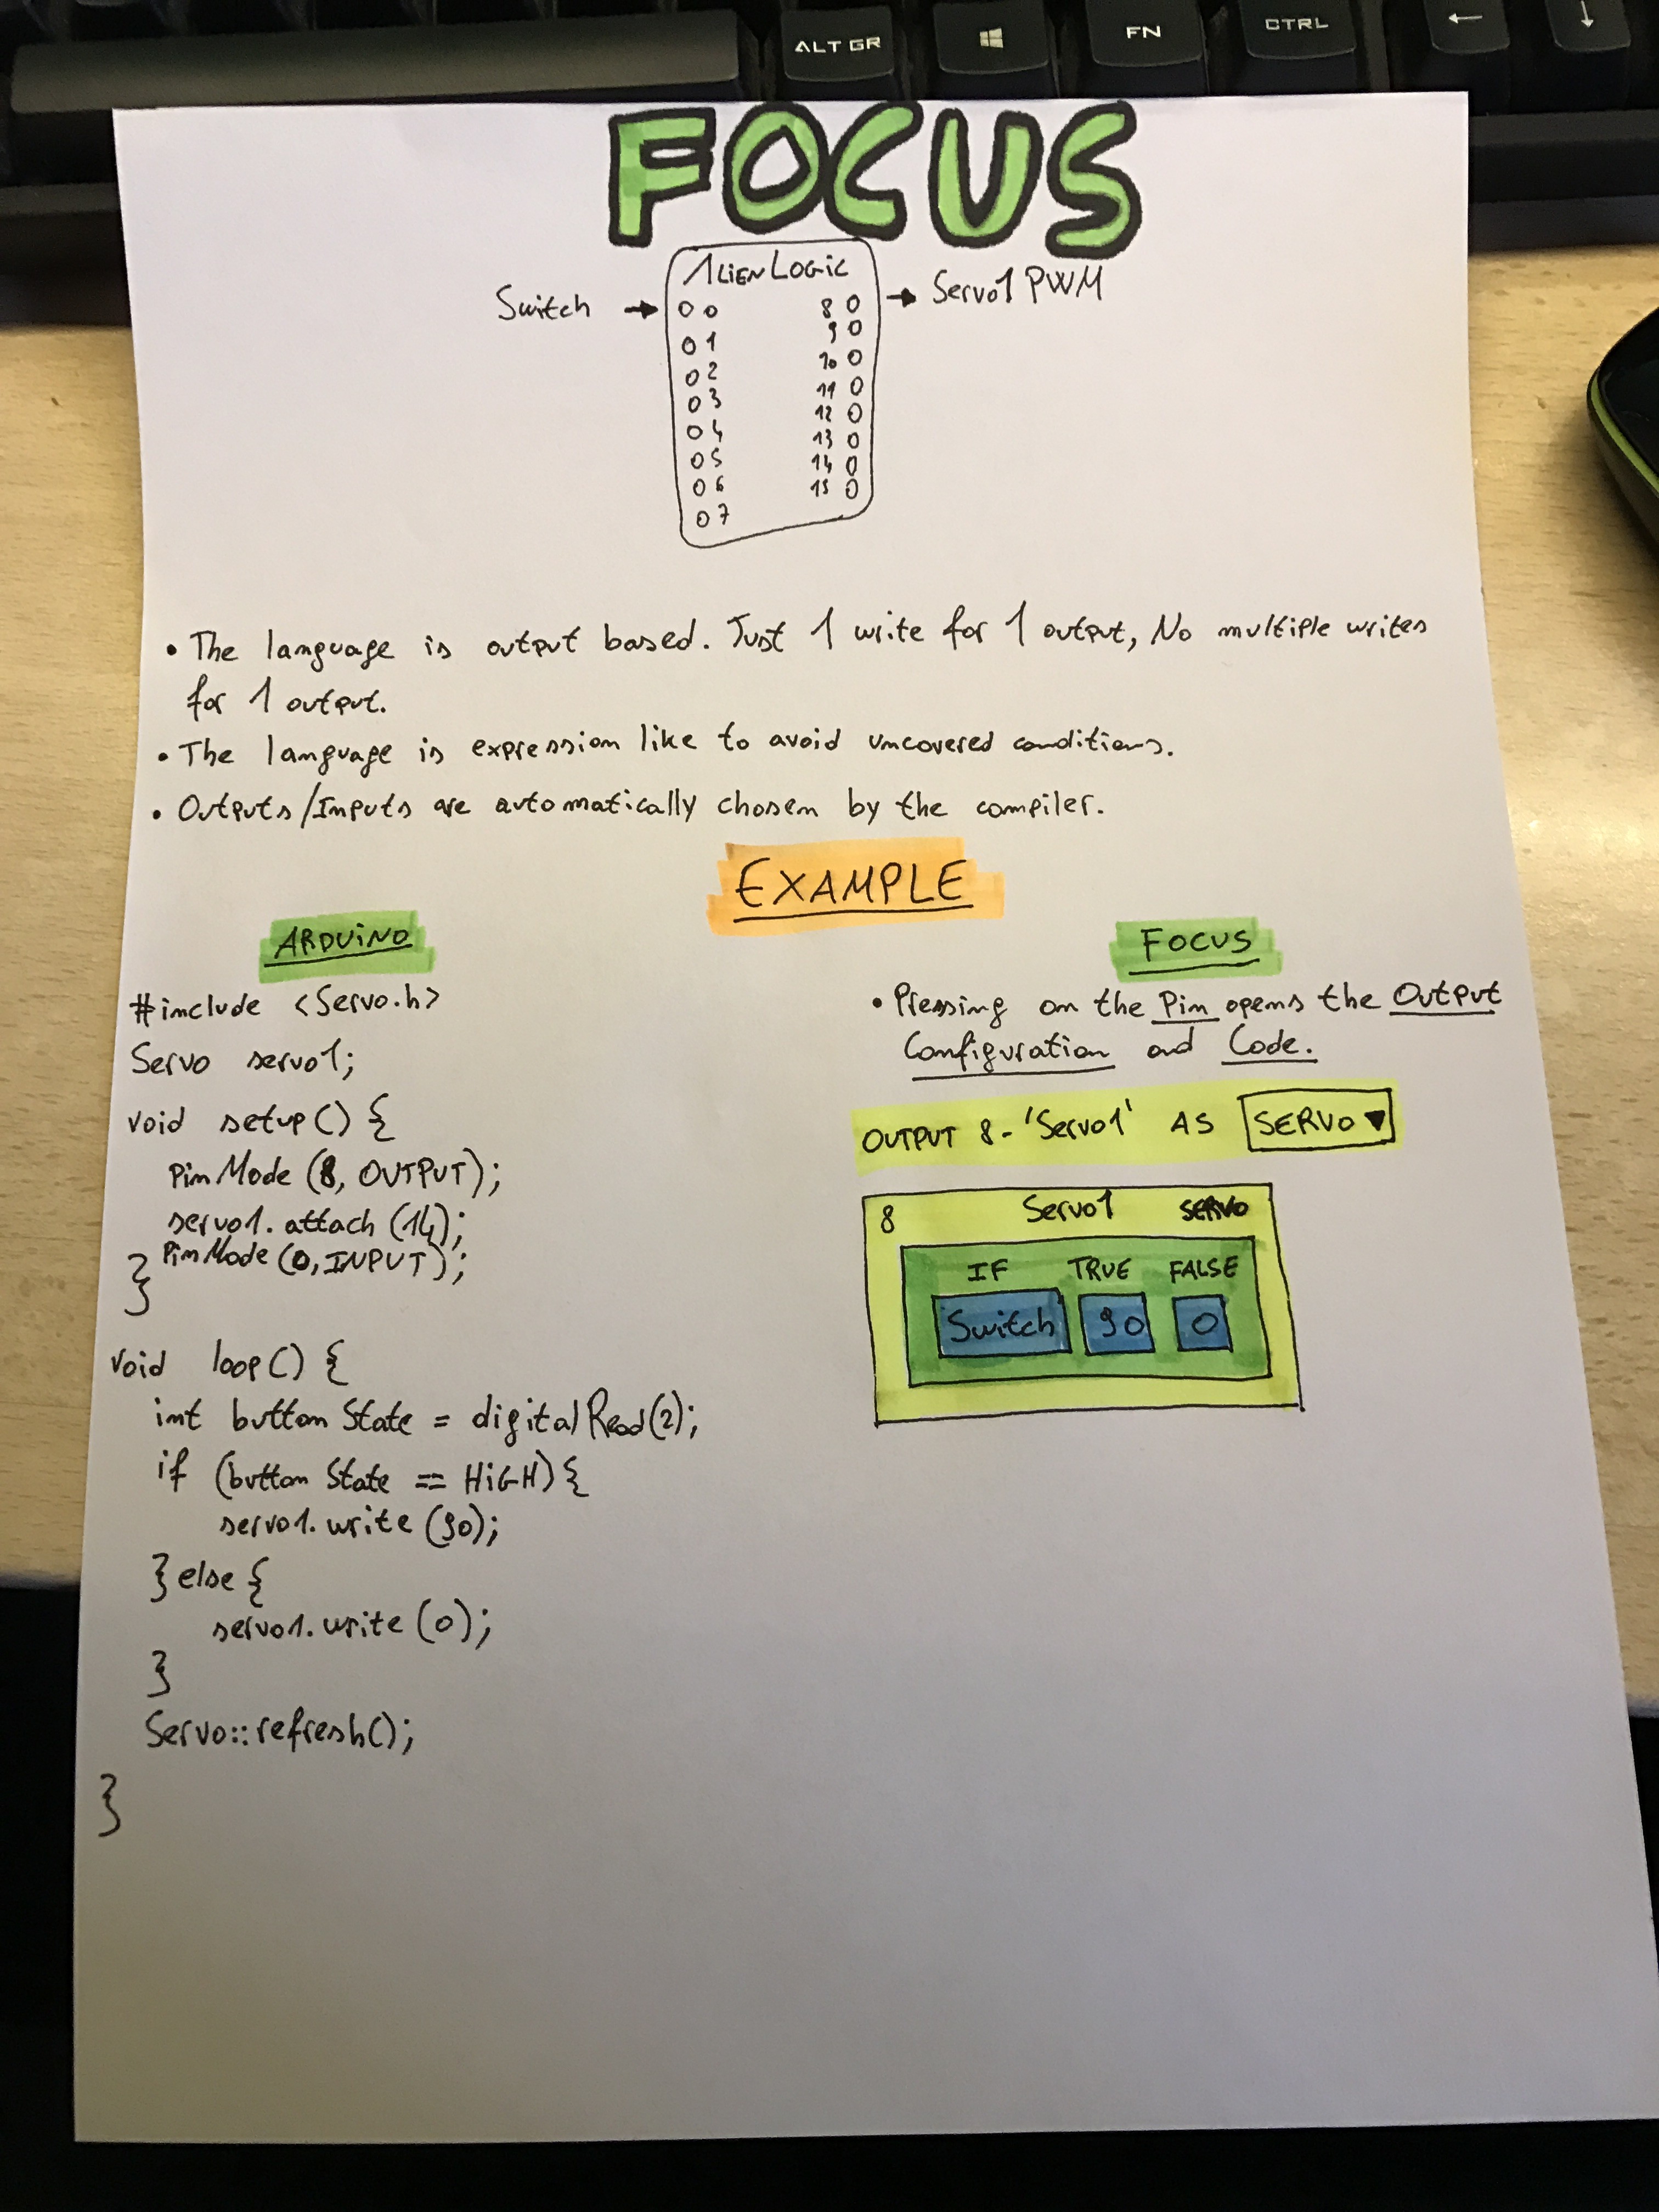 ALT GR
FN
CTRL
←
↓
FOCUS
ALIEN LOGIC
Switch → → Servo1 PWM
0 0 8 0
0 1 9 0
0 2 10 0
0 3 11 0
0 4 12 0
0 5 13 0
0 6 14 0
0 7 15 0
• The language is output based. Just 1 write for 1 output, No multiple writes
for 1 output.
• The language is expression like to avoid uncovered conditions.
• Outputs/Inputs are automatically chosen by the compiler.
EXAMPLE
ARDUiNO
#include <Servo.h>
Servo servo1;
void setup() {
PinMode (8, OUTPUT);
servo1.attach(14);
PinMode (0, INPUT);
}
void loop() {
int button State = digital Read(2);
if (button State == HiGH) {
servo1.write (90);
} else {
servo1.write (0);
}
Servo::refresh();
}
FOCUS
• Pressing on the Pin opens the Output
Configuration and Code.
OUTPUT 8 - 'Servo1' AS SERVO ▼
8 Servo1 SERVO
IF TRUE FALSE
Switch 90 0